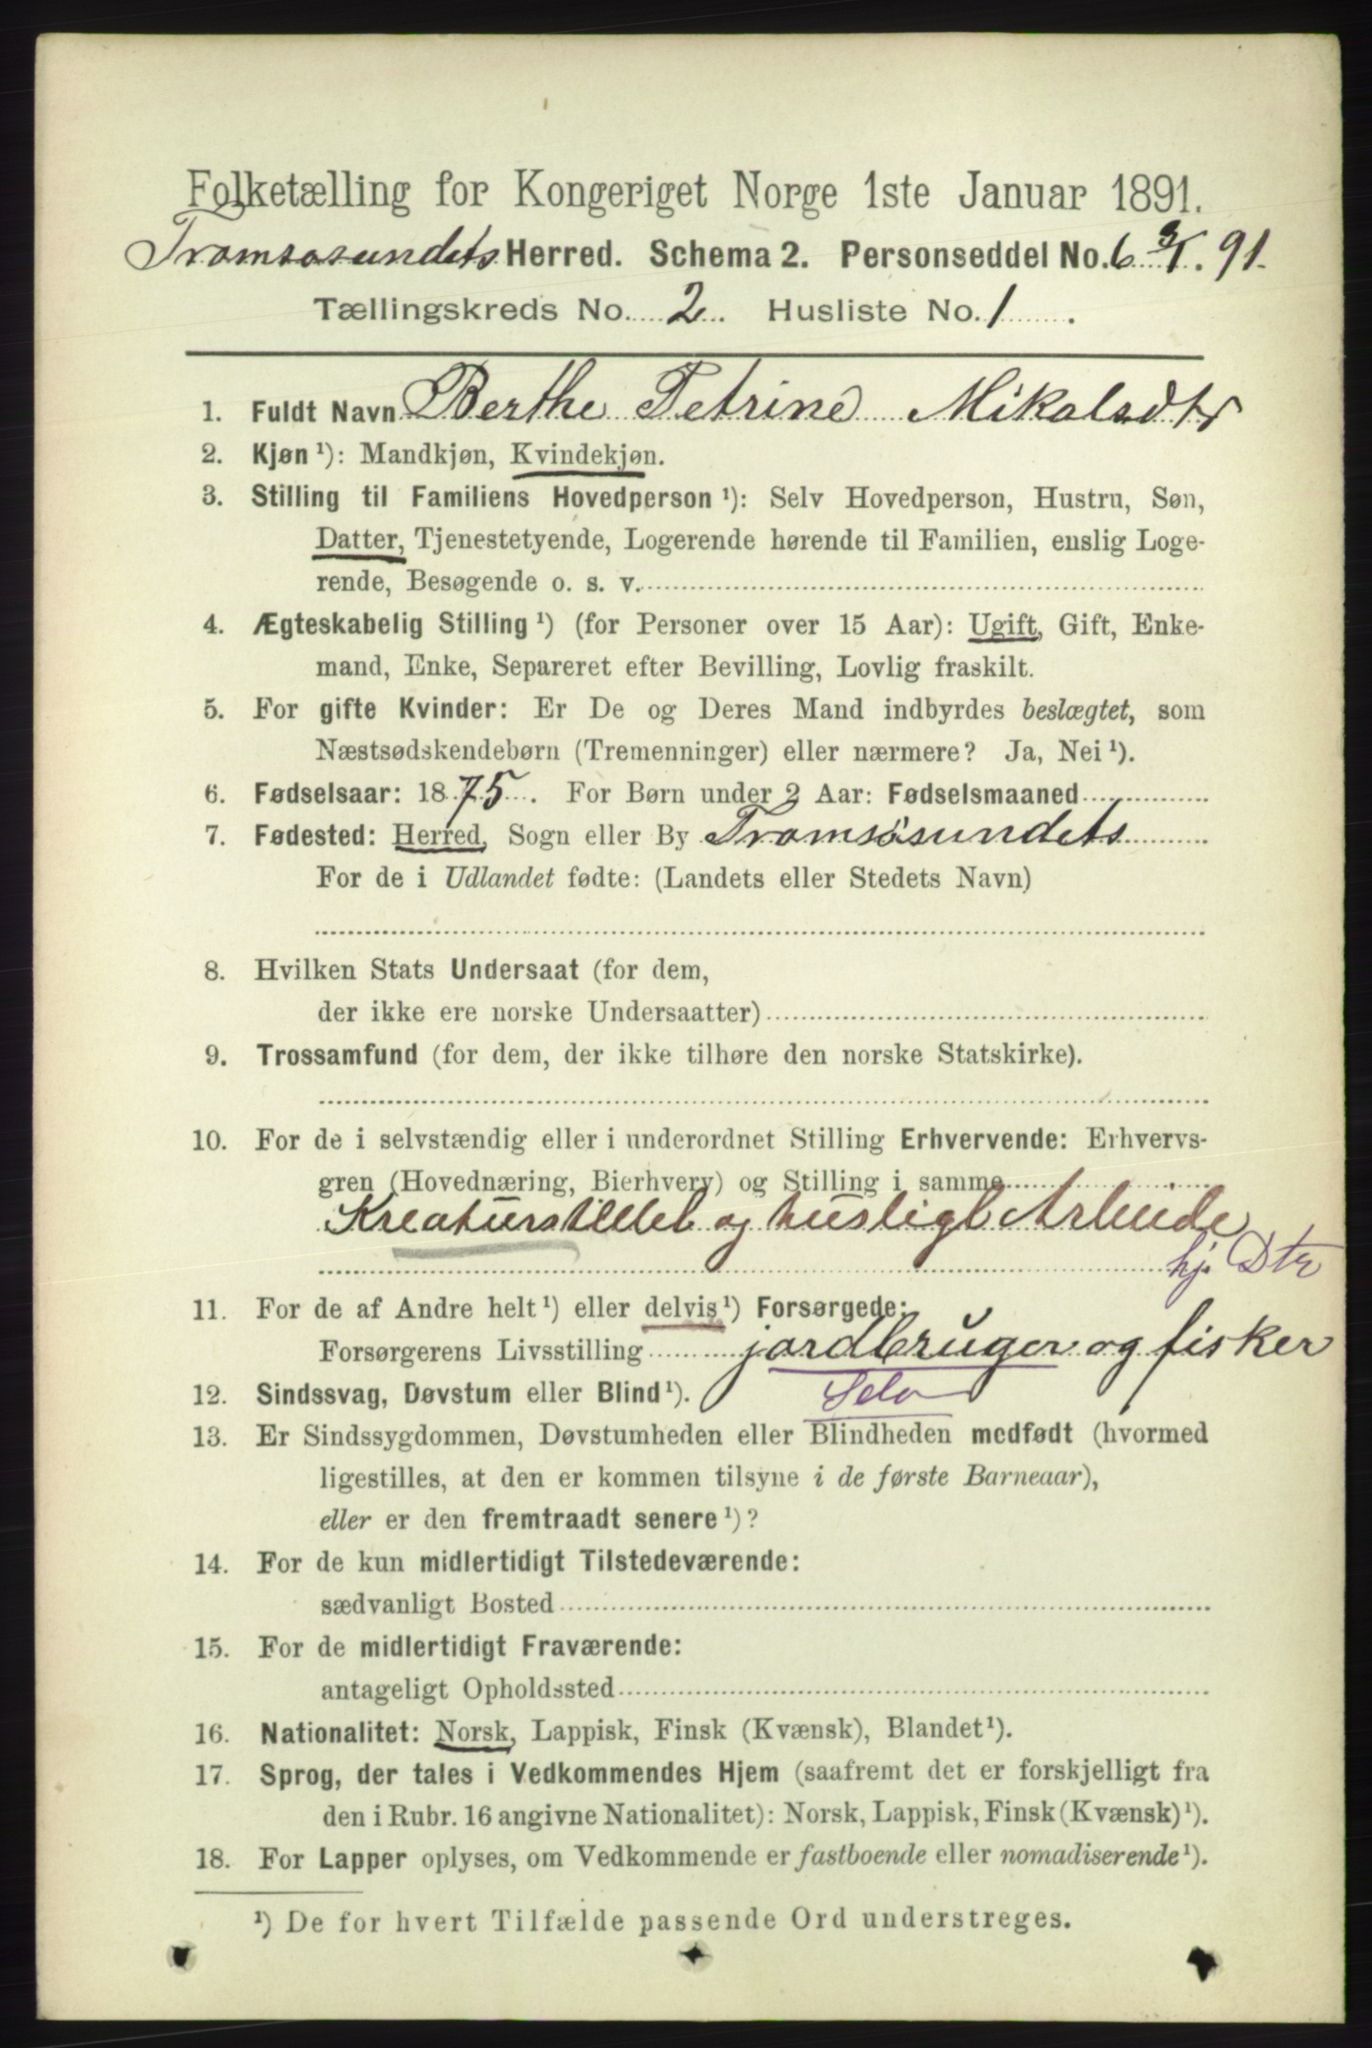 Folketælling for Kongeriget Norge 1ste Januar 1891.
Tromsøsundets Herred. Schema 2. Personseddel No. 6 3/1. 91.
Tællingskreds No. 2. Husliste No. 1.
1. Fuldt Navn Berthe Petrine Mikalsdtr
2. Kjøn ¹): Mandkjøn, Kvindekjøn.
3. Stilling til Familiens Hovedperson ¹): Selv Hovedperson, Hustru, Søn,
Datter, Tjenestetyende, Logerende hørende til Familien, enslig Loge-
rende, Besøgende o. s. v.
4. Ægteskabelig Stilling ¹) (for Personer over 15 Aar): Ugift, Gift, Enke-
mand, Enke, Separeret efter Bevilling, Lovlig fraskilt.
5. For gifte Kvinder: Er De og Deres Mand indbyrdes beslægtet, som
Næstsødskendebørn (Tremenninger) eller nærmere? Ja, Nei ¹).
6. Fødselsaar: 1875. For Børn under 2 Aar: Fødselsmaaned
7. Fødested: Herred, Sogn eller By Tromsøsundets
For de i Udlandet fødte: (Landets eller Stedets Navn)
8. Hvilken Stats Undersaat (for dem,
der ikke ere norske Undersaatter)
9. Trossamfund (for dem, der ikke tilhøre den norske Statskirke).
10. For de i selvstændig eller i underordnet Stilling Erhvervende: Erhvervs-
gren (Hovednæring, Bierhverv) og Stilling i samme
Kreaturstellet og husligt Arbeide
hj. Dtr
11. For de af Andre helt ¹) eller delvis ¹) Forsørgede:
Forsørgerens Livsstilling jordbruger og fisker
12. Sindssvag, Døvstum eller Blind ¹). Selv
13. Er Sindssygdommen, Døvstumheden eller Blindheden medfødt (hvormed
ligestilles, at den er kommen tilsyne i de første Barneaar),
eller er den fremtraadt senere ¹)?
14. For de kun midlertidigt Tilstedeværende:
sædvanligt Bosted
15. For de midlertidigt Fraværende:
antageligt Opholdssted
16. Nationalitet: Norsk, Lappisk, Finsk (Kvænsk), Blandet ¹).
17. Sprog, der tales i Vedkommendes Hjem (saafremt det er forskjelligt fra
den i Rubr. 16 angivne Nationalitet): Norsk, Lappisk, Finsk (Kvænsk) ¹).
18. For Lapper oplyses, om Vedkommende er fastboende eller nomadiserende ¹).
¹) De for hvert Tilfælde passende Ord understreges.